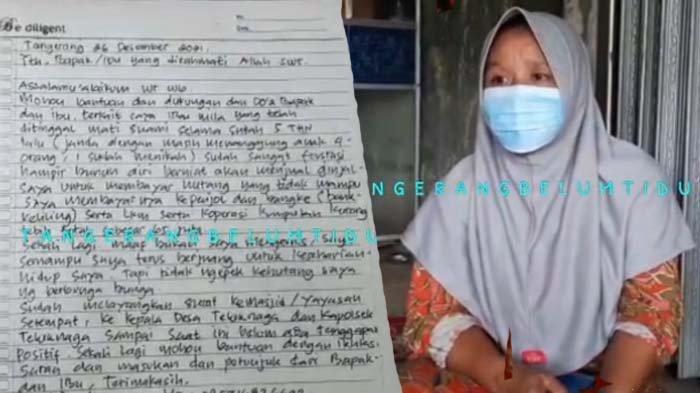 e diligent
Tangerang 26 Desember 2021.
Yth. Bapak/ibu yang dirahmati Allah SWT.
Assalamu'alaikum wr wb
Mohon bantuan dan dukungan dan Do'a Bapak
dan ibu, terkait saya ibu yang telah
ditinggal mati suami selama sudah 5 THN
lalu (janda dengan masih menanggung anak 4
orang, 1 sudah menikah) sudah sangat
hampir bunuh diri berniat akan menjual ginjal
saya untuk membayar hutang yang tidak mampu
saya membayarnya kepinjol dan bangke (bank
keliling) serta serta koperasi kumpulan
NGERANGBELUMTIDU
TANGERANGBELUMTIDU
Sekali lagi, maaf bukan saya mengemis, saya
semampu saya terus berjuang untuk
hidup saya. Tapi tidak kehutang saya
yg berbunga bunga
Sudah melayangkan surat kemasjid/yayasan
setempat, ke kepala Desa Teluknaga dan Kapolsek
Teluknaga sampai saat ini belum ada tanggapan
positif. Sekali lagi mohon bantuan dengan ikhlas
saran dan masukan dan petunjuk dari Bapak
dan ibu, Terimakasih.